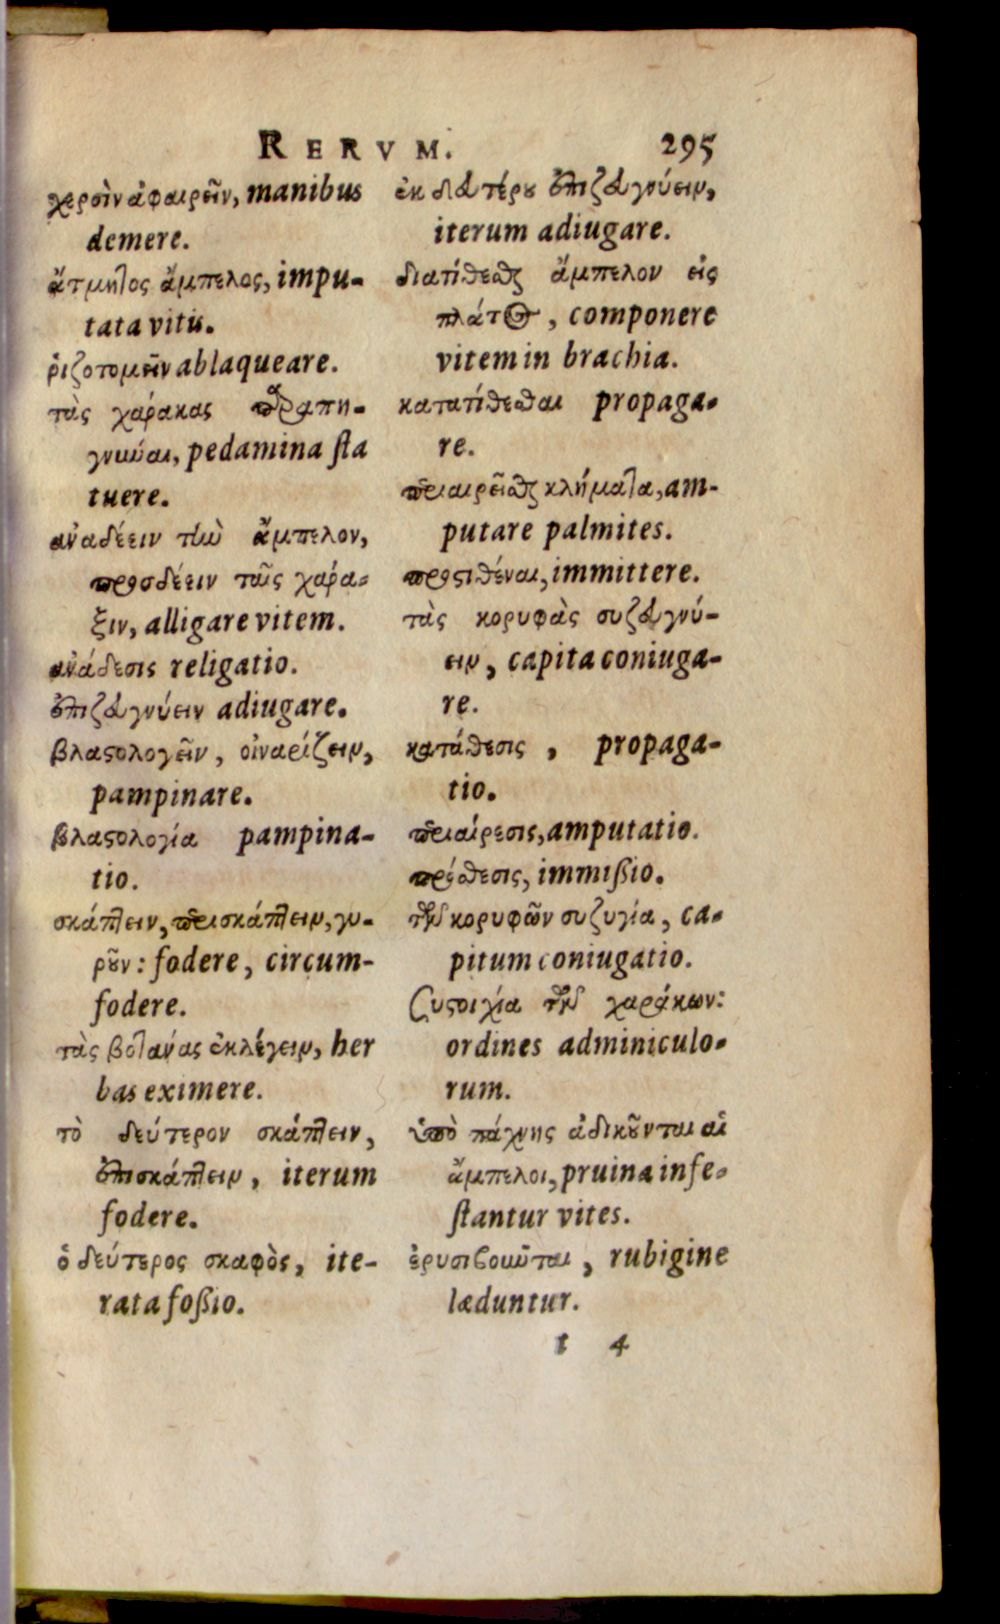 RERVM. 295
χερσὶν ἀφαιρεῖν, manibus
demere.
ἄτμητος ἄμπελος, impu-
tata vitis.
ῥιζοτομεῖν ablaqueare.
τὰς χάρακας παραπη-
γνύναι, pedamina sta
tuere.
ἀναδέειν τὴν ἄμπελον,
προσδέειν ταῖς χάρα-
ξιν, alligare vitem.
ἀνάδεσις religatio.
ἐπιζευγνύειν adiugare.
βλαστολογεῖν, οἰναρίζειν,
pampinare.
βλαστολογία pampina-
tio.
σκάπτειν, περισκάπτειν, γυ-
ροῦν: fodere, circum-
fodere.
τὰς βοτανάς ἐκλέγειν, her
bas eximere.
τὸ δεύτερον σκάπτειν,
ἐπισκάπτειν, iterum
fodere.
ὁ δεύτερος σκαφὸς, ite-
rata foßio.
ἐκ δευτέρου ἐπιζευγνύειν,
iterum adiugare.
διατίθεσθαι ἄμπελον εἰς
πλάτος, componere
vitem in brachia.
κατατίθεσθαι propaga-
re.
περιαιρεῖσθαι κλήματα, am-
putare palmites.
προστιθέναι, immittere.
τὰς κορυφὰς συζευγνύ-
ειν, capita coniuga-
re.
κατάθεσις, propaga-
tio.
περιαίρεσις, amputatio.
πρόσθεσις, immißio.
τῶν κορυφῶν συζυγία, ca-
pitum coniugatio.
συστοιχία τῶν χαράκων:
ordines adminiculo-
rum.
ὑπὸ πάχνης ἀδικοῦνται αἱ
ἄμπελοι, pruina infe-
stantur vites.
ἐρυσιβοῦνται, rubigine
læduntur.
t 4